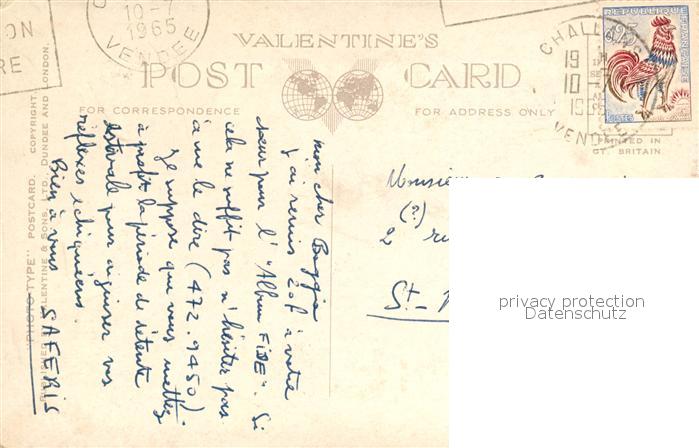 10-7
1965
VENDEE
VALENTINE'S
POST CARD
FOR CORRESPONDENCE
FOR ADDRESS ONLY
CHALLANS
19 H
10-7
196
VENDEE
REPUBLIQUE FRANÇAISE
0,25
POSTES
PRINTED IN
GT. BRITAIN
"PHOTO-TYPE" POSTCARD. COPYRIGHT.
PUBLISHED VALENTINE & SONS, LTD., DUNDEE AND LONDON.
mon cher Boggio
J'ai remis 20f à votre
sœur pour l'"Album FIDE". Si
cela ne suffit pas n'hésitez pas
à me le dire (472.9450).
Je suppose que vous mettez
à profit la période de détente
estivale pour aiguiser vos
réflexes échiquéens.
Bien à vous SAFERIS
Monsieur
(?)
2 ru
St-
privacy protection
Datenschutz